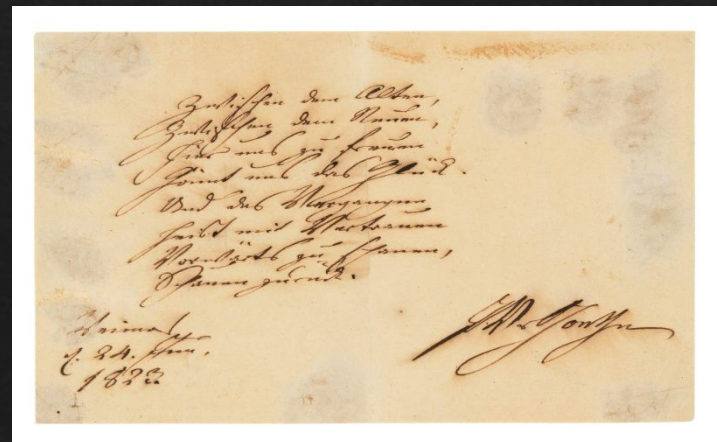 Zwischen dem Alten,
Zwischen dem Neuen,
Hier uns zu freuen
Gönnt uns das Glück.
Und das Vergangne
Heist mit Vertrauen
Vorwärts zu schauen,
Schauen zurück.
Weimar
d. 24.
1823
JWvGoethe